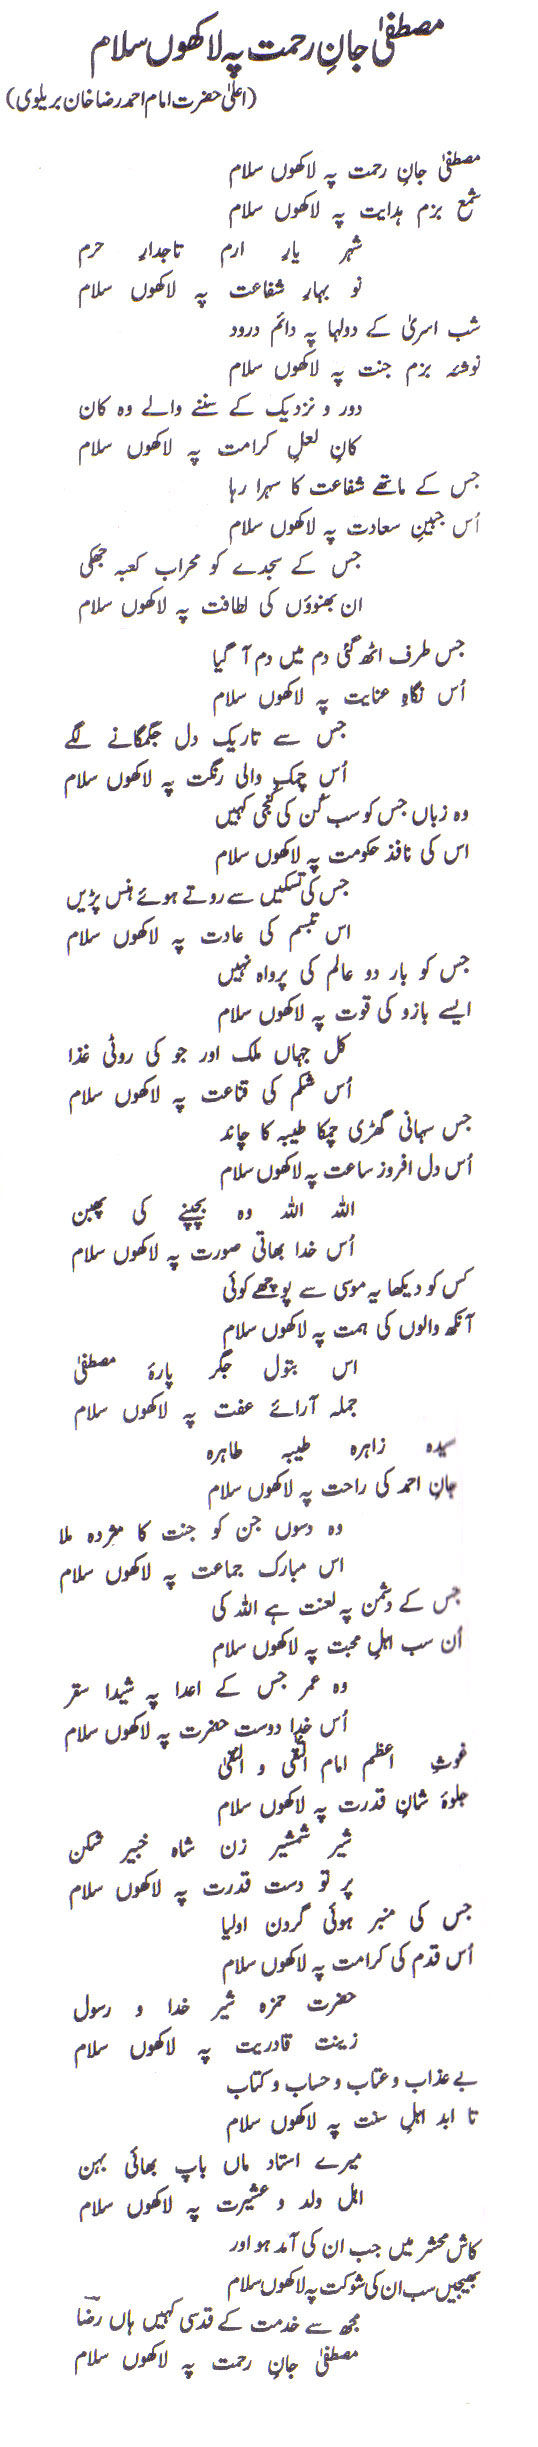 مصطفیٰ جانِ رحمت پہ لاکھوں سلام
(اعلیٰ حضرت امام احمد رضا خان بریلوی)
مصطفیٰ جانِ رحمت پہ لاکھوں سلام
شمع بزم ہدایت پہ لاکھوں سلام
شہر یارِ ارم تاجدارِ حرم
نو بہارِ شفاعت پہ لاکھوں سلام
شب اسریٰ کے دولہا پہ دائم درود
نوشۂ بزم جنت پہ لاکھوں سلام
دور و نزدیک کے سننے والے وہ کان
کانِ لعلِ کرامت پہ لاکھوں سلام
جس کے ماتھے شفاعت کا سہرا رہا
اُس جبینِ سعادت پہ لاکھوں سلام
جس کے سجدے کو محراب کعبہ جھکی
ان بھنوؤں کی لطافت پہ لاکھوں سلام
جس طرف اٹھ گئی دم میں دم آ گیا
اُس نگاہِ عنایت پہ لاکھوں سلام
جس سے تاریک دل جگمگانے لگے
اُس چمک والی رنگت پہ لاکھوں سلام
وہ زباں جس کو سب کُن کی کنجی کہیں
اس کی نافذ حکومت پہ لاکھوں سلام
جس کی تسکیں سے روتے ہوئے ہنس پڑیں
اس تبسم کی عادت پہ لاکھوں سلام
جس کو بار دو عالم کی پرواہ نہیں
ایسے بازو کی قوت پہ لاکھوں سلام
کل جہاں ملک اور جو کی روٹی غذا
اُس شکم کی قناعت پہ لاکھوں سلام
جس سہانی گھڑی چمکا طیبہ کا چاند
اُس دل افروز ساعت پہ لاکھوں سلام
اللہ اللہ وہ بچپنے کی پھبن
اُس خدا بھاتی صورت پہ لاکھوں سلام
کس کو دیکھا یہ موسی سے پوچھے کوئی
آنکھ والوں کی ہمت پہ لاکھوں سلام
اس بتول جگر پارۂ مصطفیٰ
جملہ آرائے عفت پہ لاکھوں سلام
سیدہ زاہرہ طیبہ طاہرہ
جانِ احمد کی راحت پہ لاکھوں سلام
وہ دسوں جن کو جنت کا مژدہ ملا
اس مبارک جماعت پہ لاکھوں سلام
جس کے دشمن پہ لعنت ہے اللہ کی
اُن سب اہلِ محبت پہ لاکھوں سلام
وہ عمر جس کے اعدا پہ شیدا سقر
اُس خدا دوست حضرت پہ لاکھوں سلام
غوثِ اعظم امام التقی و النقیٰ
جلوۂ شانِ قدرت پہ لاکھوں سلام
شیر شمشیر زن شاہ خیبر شکن
پر تو دست قدرت پہ لاکھوں سلام
جس کی منبر ہوئی گردن اولیا
اُس قدم کی کرامت پہ لاکھوں سلام
حضرت حمزہ شیر خدا و رسول
زینت قادریت پہ لاکھوں سلام
بے عذاب و عتاب و حساب و کتاب
تا ابد اہلِ سنت پہ لاکھوں سلام
میرے استاد ماں باپ بھائی بہن
اہل ولد و عشیرت پہ لاکھوں سلام
کاش محشر میں جب ان کی آمد ہو اور
بھیجیں سب ان کی شوکت پہ لاکھوں سلام
مجھ سے خدمت کے قدسی کہیں ہاں رضاؔ
مصطفیٰ جانِ رحمت پہ لاکھوں سلام